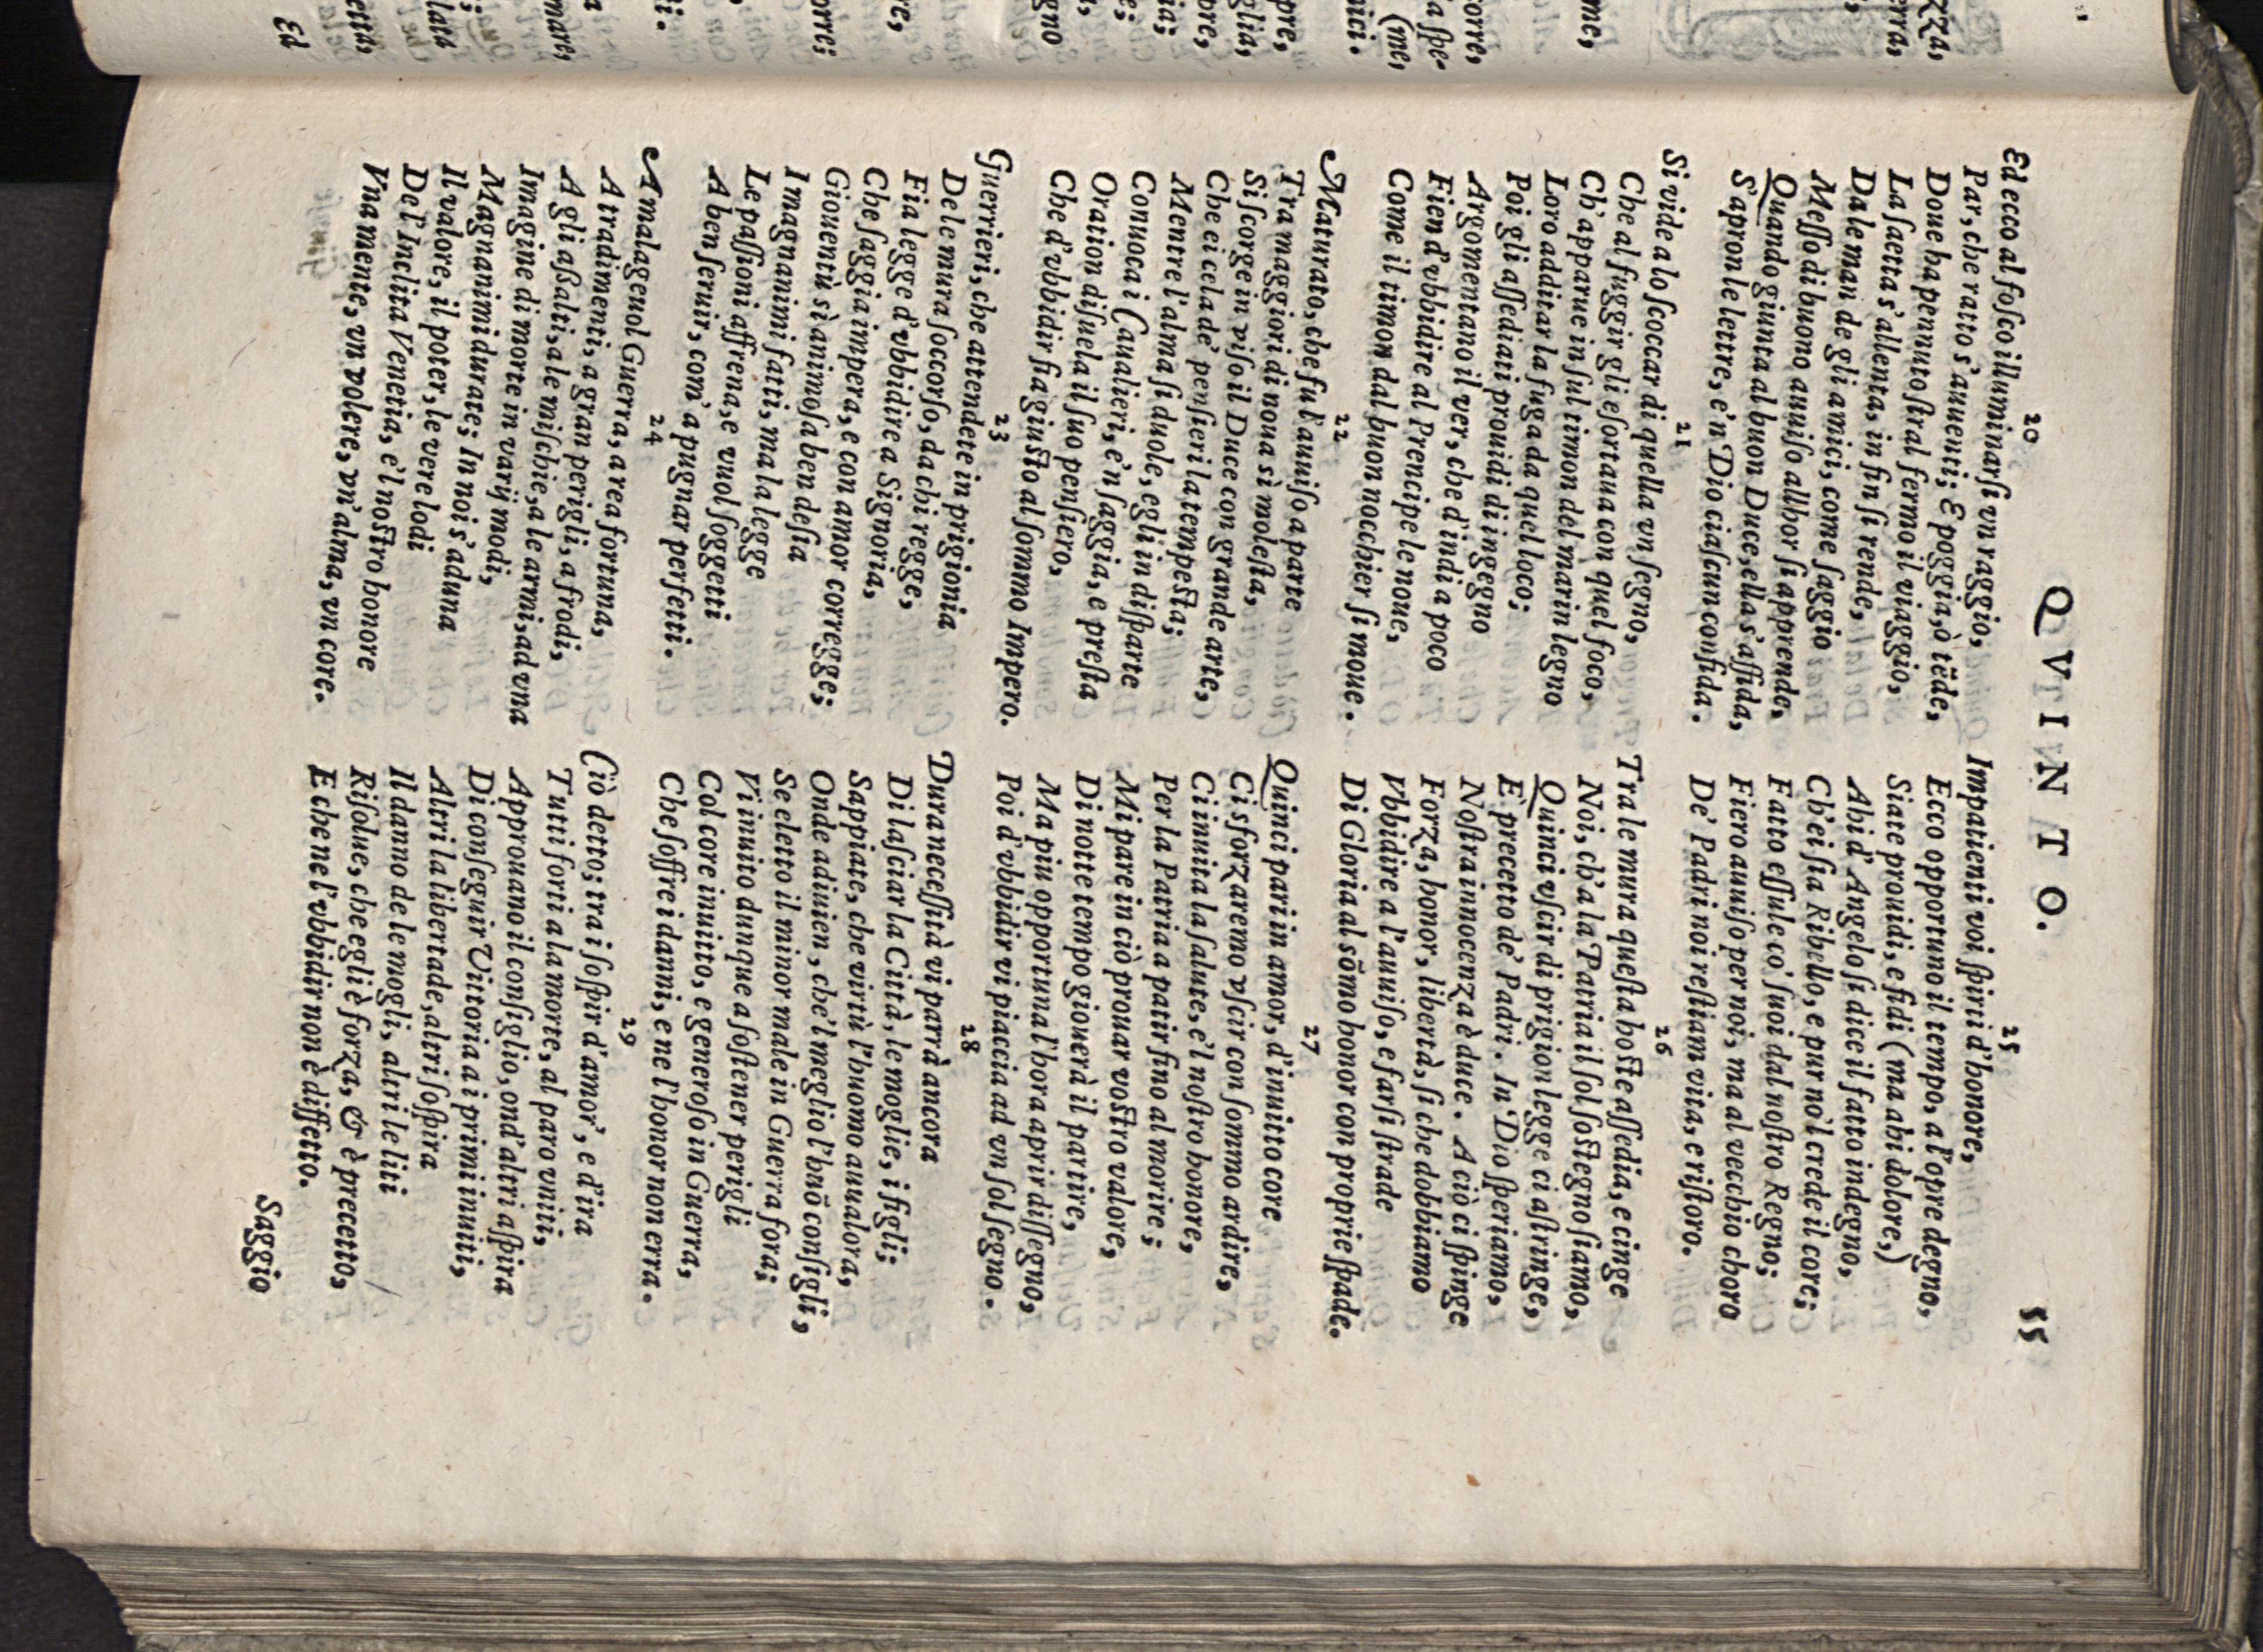 QVINTO. 55
20
Ed ecco al foſco illuminarſi vn raggio,
Par, che ratto s'auuenti; E poggia, ò tẽde,
Doue ha pennuto ſtral fermo il viaggio,
La ſaetta s'allenta, in fin ſi rende,
Da le man de gli amici, come ſaggio
Meſſo di buono auuiſo allhor ſi apprende,
Quando giunta al buon Duce, ella s'affida,
S'apron le lettre, e'n Dio ciaſcun confida.
21
Si vide a lo ſcoccar di quella vn ſegno,
Che al fuggir gli eſortaua con quel foco,
Ch'apparue in ſul timon del marin legno
Loro additar la fuga da quel loco;
Poi gli aſſediati prouidi di ingegno
Argomentano il ver, che d'indi a poco
Fien d'vbbidire al Prencipe le noue,
Come il timon dal buon nocchier ſi moue.
22
Maturato, che fu l'auuiſo a parte
Tra maggiori di noua sì moleſta,
Si ſcorge in viſo il Duce con grande arte,
Che ei cela de' penſieri la tempeſta;
Mentre l'alma ſi duole, egli in diſparte
Conuoca i Caualieri, e'n ſaggia, e preſta
Oration diſuela il ſuo penſiero,
Che d'vbbidir ſia giuſto al ſommo Impero.
23
Guerrieri, che attendete in prigionia
Dele mura ſoccorſo, da chi regge,
Fia legge d'vbbidire a Signoria,
Che ſaggia impera, e con amor corregge;
Giouentù sì animoſa ben deſia
I magnanimi fatti, ma la legge
Le paſſioni affrena, e vuol ſoggetti
A ben ſeruir, com' a pugnar perfetti.
24
A malageuol Guerra, a rea fortuna,
A tradimenti, a gran perigli, a frodi,
A gli aſſalti, a le miſchie, a le armi, ad vna
Imagine di morte in varij modi,
Magnanimi durate; In noi s'aduna
Il valore, il poter, le vere lodi
Del' Inclita Venetia, e'l noſtro honore
Vna mente, vn volere, vn' alma, vn core.
25
Impatienti voi ſpirti d'honore,
Ecco opportuno il tempo, a l'opre degno,
Siate prouidi, e fidi (ma ahi dolore,)
Ahi d'Angelo ſi dice il fatto indegno,
Ch'ei ſia Ribello, e pur no'l crede il core;
Fatto eſſule co' ſuoi dal noſtro Regno;
Fiero auuiſo per noi, ma al vecchio choro
De' Padri noi reſtiam vita, e riſtoro.
26
Tra le mura queſta hoſte aſſedia, e cinge
Noi, ch'a la Patria il ſol ſoſtegno ſiamo,
Quinci vſcir di prigion legge ci aſtringe,
E' precetto de' Padri. In Dio ſperiamo,
Noſtra innocenza è duce. A ciò ci ſpinge
Forza, honor, libertà, ſi che dobbiamo
Vbbidire a l'auuiſo, e farſi ſtrade
Di Gloria al sõmo honor con proprie ſpade.
27
Quinci pari in amor, d'inuitto core
Ci sforzaremo vſcir con ſommo ardire,
Ci inuita la ſalute, e'l noſtro honore,
Per la Patria a patir fino al morire;
Mi pare in ciò prouar voſtro valore,
Di notte tempo giouerà il partire,
Ma piu opportuna l'hora aprir diſſegno,
Poi d'vbbidir vi piaccia ad vn ſol ſegno.
28
Dura neceſſità vi parrà ancora
Di laſciar la Città, le moglie, i figli;
Sappiate, che virtù l'huomo auualora,
Onde adiuien, che'l meglio l'huõ conſigli,
Se eletto il minor male in Guerra fora;
V'inuito dunque a ſoſtener perigli
Col core inuitto, e generoſo in Guerra,
Che ſoffre i danni, e ne l'honor non erra.
29
Ciò detto; tra i ſoſpir d'amor', e d'ira
Tutti forti a la morte, al paro vniti,
Approuano il conſiglio, ond'altri aſpira
Di conſeguir Vittoria a i primi inuiti,
Altri la libertade, altri ſoſpira
Il danno de le mogli, altri le liti
Riſolue, che egli è forza, & è precetto,
E che ne l'vbbidir non è diffetto.
Saggio
zza,
erra,
me,
orre,
a ſpe-
(me,
nici.
pre,
glia,
ore,
ia;
e;
gno
re,
orre;
i.
mare,
lata
etta,
Ed